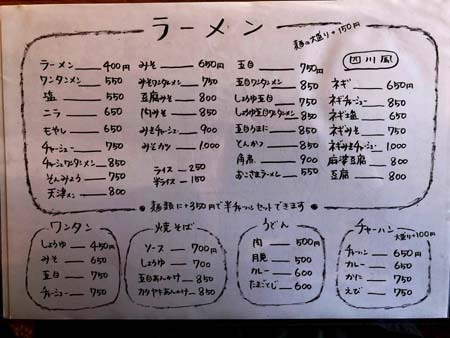 ラーメン
麺の大盛り+150円
ラーメン — 400円
ワンタンメン — 550
塩 — 550
ニラ — 650
モヤシ — 650
チャーシュー — 750
チャーシューワンタンメン — 850
そんみょう — 750
天津メン — 800
みそ — 650円
みそワンタンメン — 750
豆腐みそ — 800
肉みそ — 850
みそチャーシュー — 900
みそカツ — 1,000
ライス — 250
半ライス — 150
五目 — 750円
五目ワンタンメン — 850
しょうゆ五目 — 750
しょうゆ五目ワンタンメン — 850
五目うまに — 850
とんかつ — 850
角煮 — 900
おこさまラーメン — 550
四川風
ネギ — 650円
ネギチャーシュー — 850
ネギ塩 — 650
ネギみそ — 750
ネギみそチャーシュー — 1,000
麻婆豆腐 — 800
豆腐 — 800
● 麺類に+350円で半チャーハンセットできます ●
ワンタン
しょうゆ — 450円
みそ — 650
五目 — 750
チャーシュー — 750
焼そば
ソース — 700円
しょうゆ — 700
五目あんかけ — 850
カタヤキあんかけ — 850
うどん
肉 — 500円
月見 — 500
カレー — 600
たまごとじ — 600
チャーハン
大盛り+100円
チャーハン — 650円
カレー — 650
かに — 750
えび — 750